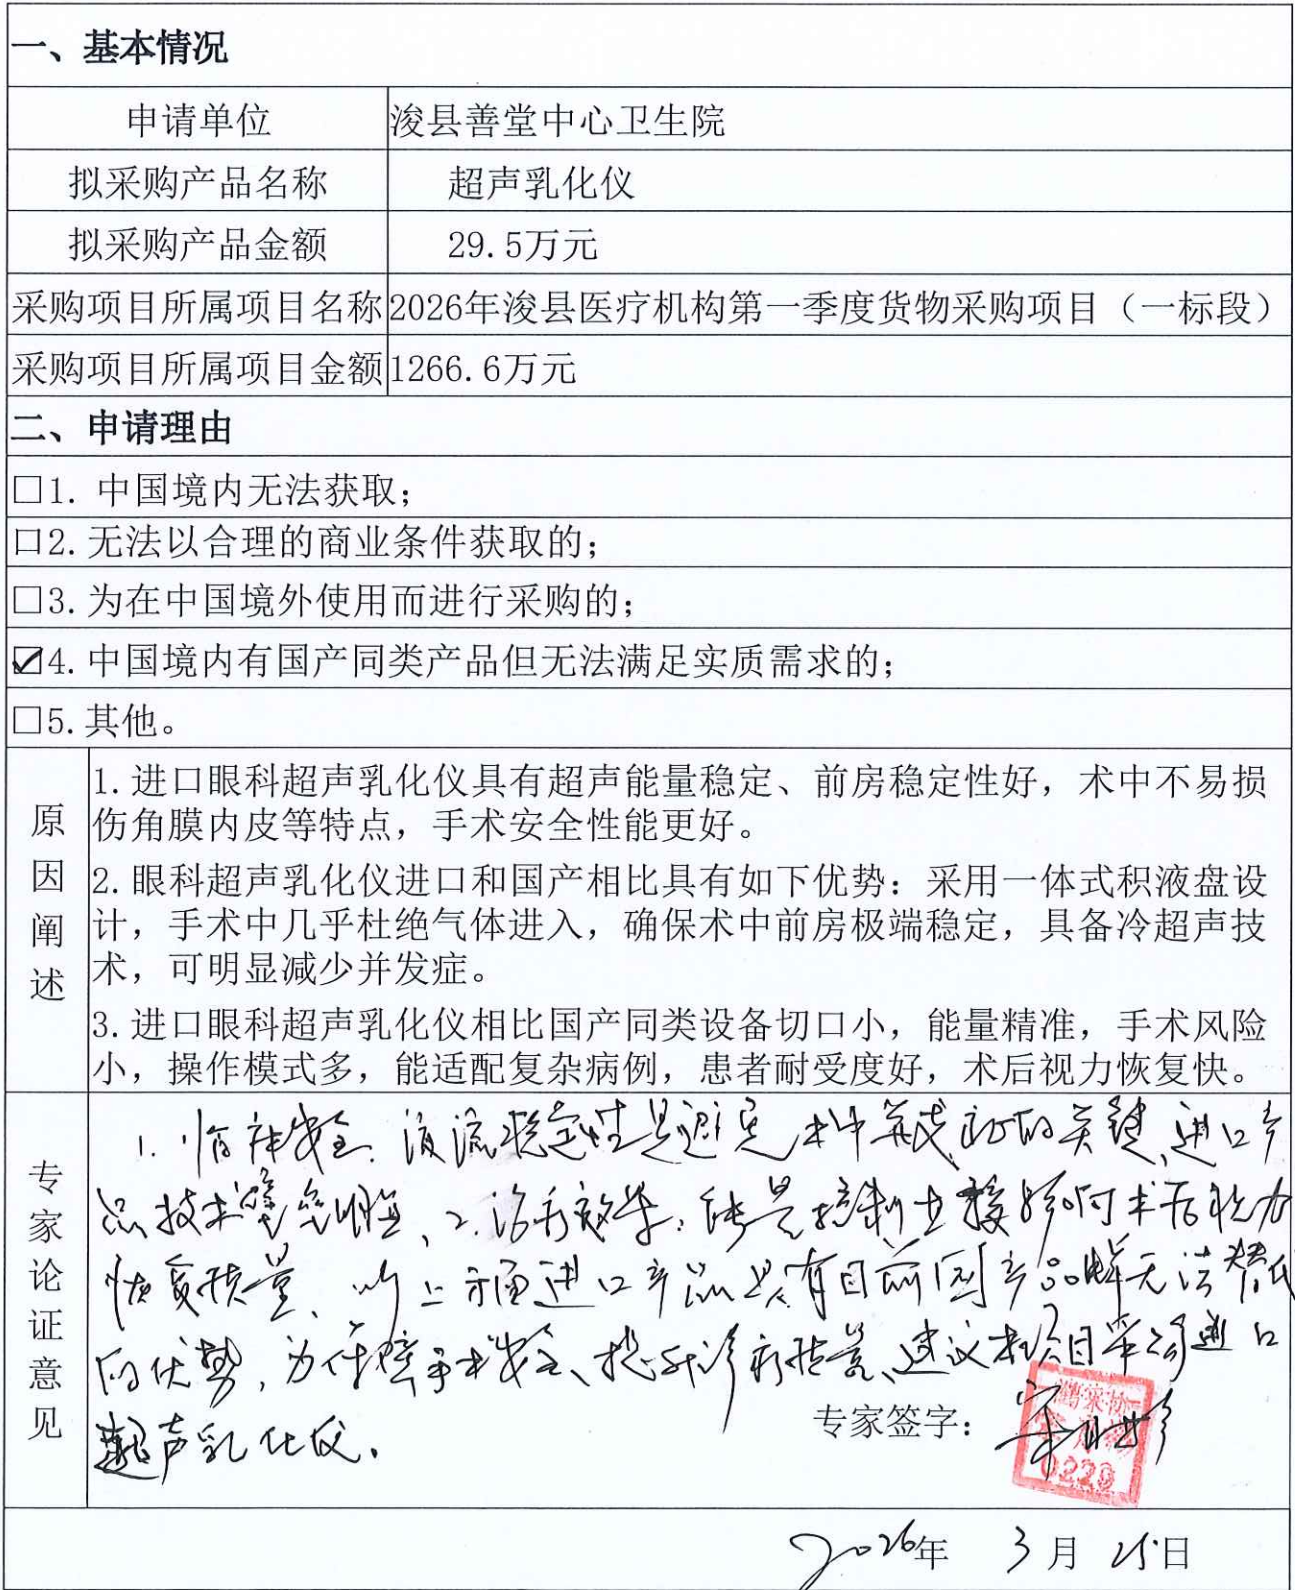 一、基本情况
申请单位 浚县善堂中心卫生院
拟采购产品名称 超声乳化仪
拟采购产品金额 29.5万元
采购项目所属项目名称 2026年浚县医疗机构第一季度货物采购项目（一标段）
采购项目所属项目金额 1266.6万元
二、申请理由
□1. 中国境内无法获取；
口2. 无法以合理的商业条件获取的；
□3. 为在中国境外使用而进行采购的；
☑4. 中国境内有国产同类产品但无法满足实质需求的；
□5. 其他。
原因阐述
1. 进口眼科超声乳化仪具有超声能量稳定、前房稳定性好，术中不易损
伤角膜内皮等特点，手术安全性能更好。
2. 眼科超声乳化仪进口和国产相比具有如下优势：采用一体式积液盘设
计，手术中几乎杜绝气体进入，确保术中前房极端稳定，具备冷超声技
术，可明显减少并发症。
3. 进口眼科超声乳化仪相比国产同类设备切口小，能量精准，手术风险
小，操作模式多，能适配复杂病例，患者耐受度好，术后视力恢复快。
专家论证意见
1. 临床安全：液流稳定性是避免术中并发症的关键，进口产
品技术壁垒明显、2. 治疗效果：能量控制直接影响术后视力
恢复质量、以上方面进口产品具有目前国产品牌无法替代
的优势，为保障手术安全、提升诊疗质量、建议本项目采购进口
超声乳化仪。
专家签字：
0229
2026年 3月 25日